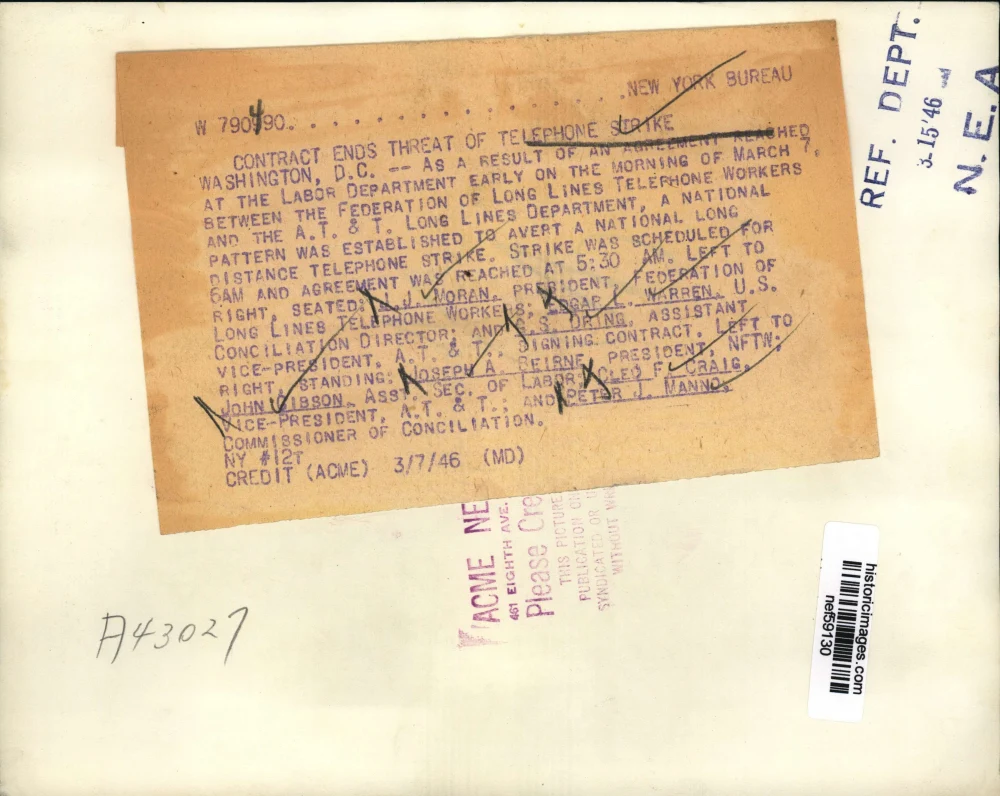 NEW YORK BUREAU
W 790490
CONTRACT ENDS THREAT OF TELEPHONE STRIKE
WASHINGTON, D.C. -- AS A RESULT OF AN AGREEMENT REACHED
AT THE LABOR DEPARTMENT EARLY ON THE MORNING OF MARCH 7,
BETWEEN THE FEDERATION OF LONG LINES TELEPHONE WORKERS
AND THE A.T. & T. LONG LINES DEPARTMENT, A NATIONAL
PATTERN WAS ESTABLISHED TO AVERT A NATIONAL LONG
DISTANCE TELEPHONE STRIKE. STRIKE WAS SCHEDULED FOR
6AM AND AGREEMENT WAS REACHED AT 5:30 AM. LEFT TO
RIGHT, SEATED: J.J. MORAN, PRESIDENT, FEDERATION OF
LONG LINES TELEPHONE WORKERS; EDGAR L. WARREN, U.S.
CONCILIATION DIRECTOR; AND G.S. DRING, ASSISTANT
VICE-PRESIDENT, A.T. & T., SIGNING CONTRACT. LEFT TO
RIGHT, STANDING: JOSEPH A. BEIRNE, PRESIDENT, NFTW;
JOHN GIBSON, ASST. SEC. OF LABOR; CLEO F. CRAIG,
VICE-PRESIDENT, A.T. & T.; AND PETER J. MANNO,
COMMISSIONER OF CONCILIATION.
NY #12T
CREDIT (ACME) 3/7/46 (MD)
REF. DEPT.
3-15'46
N.E.A
ACME NE
461 EIGHTH AVE.
Please Cre
THIS PICTURE
PUBLICATION
SYNDICATED OR
WITHOUT
A43027
historicimages.com
nef59130